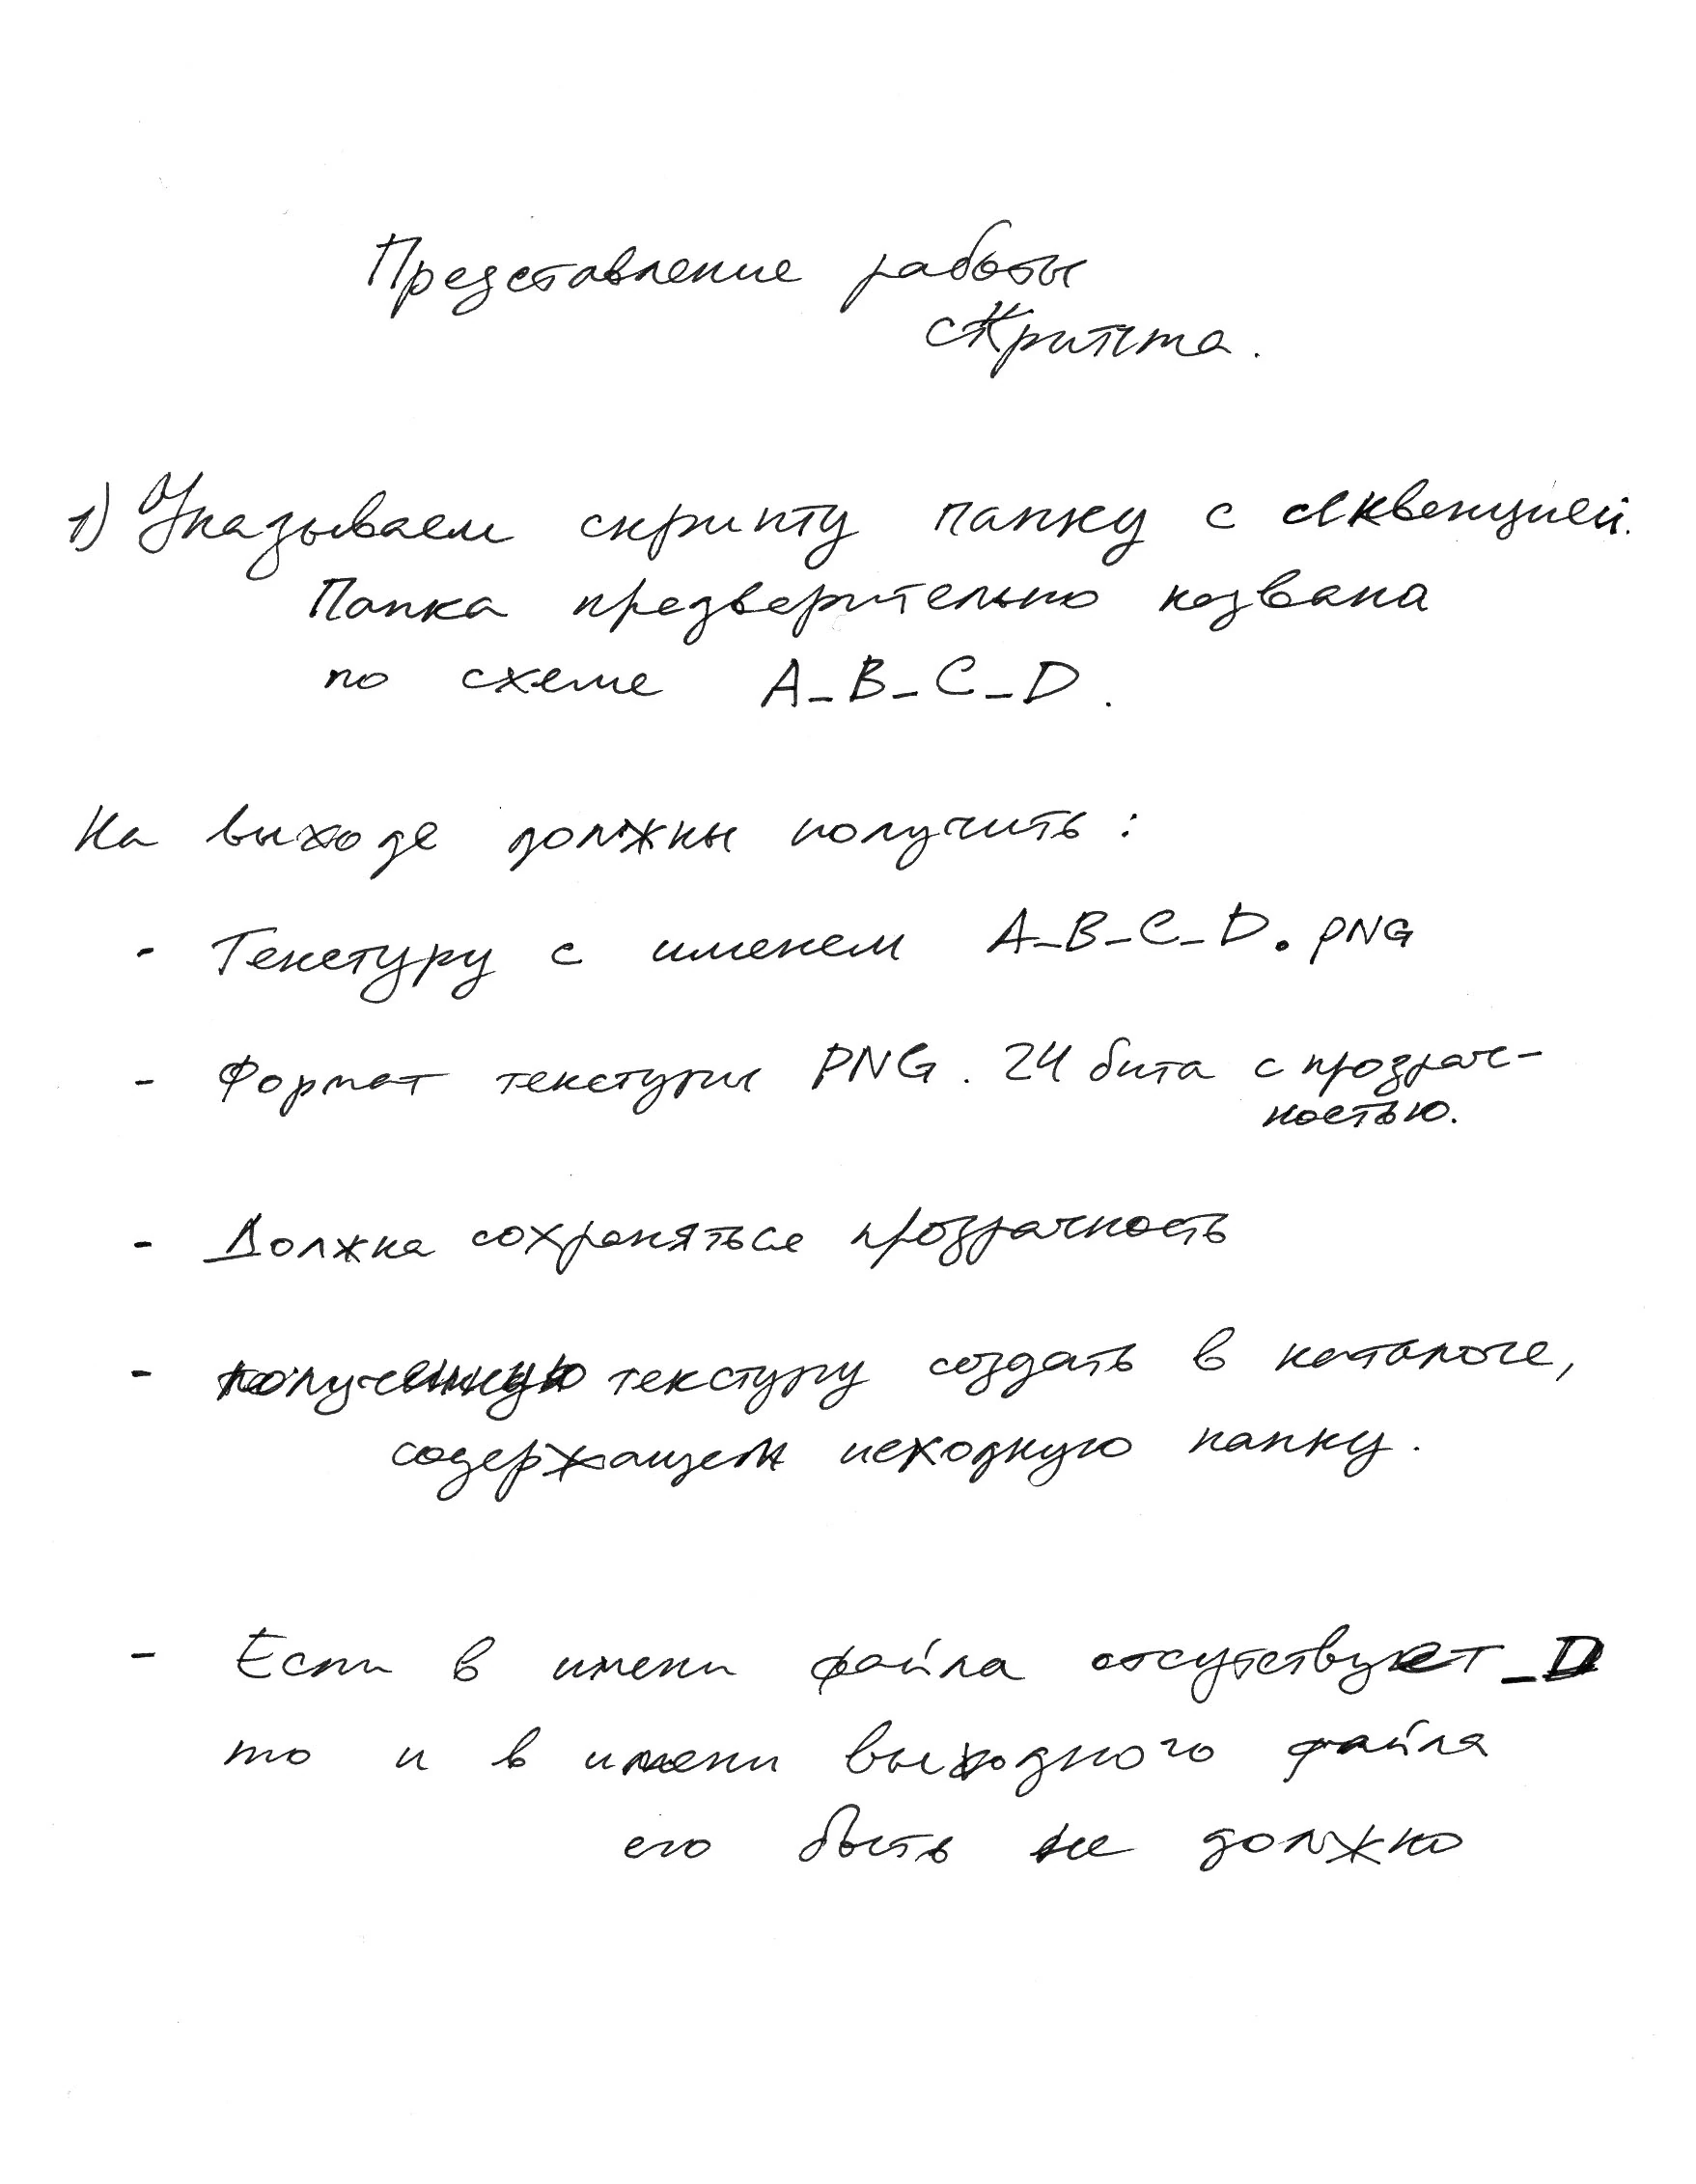 Представление работы
скрипта.
1) Указываем скрипту папку с секвенцией.
Папка предварительно названа
по схеме A_B_C_D.
На выходе должны получить:
- Текстуру с именем A_B_C_D.PNG
- Формат текстуры PNG. 24 бита с прозрач-
ностью.
- Должна сохраняться прозрачность
- полученную текстуру создать в каталоге,
содержащем исходную папку.
- Если в имени файла отсутствует _D
то и в имени выходного файла
его быть не должно